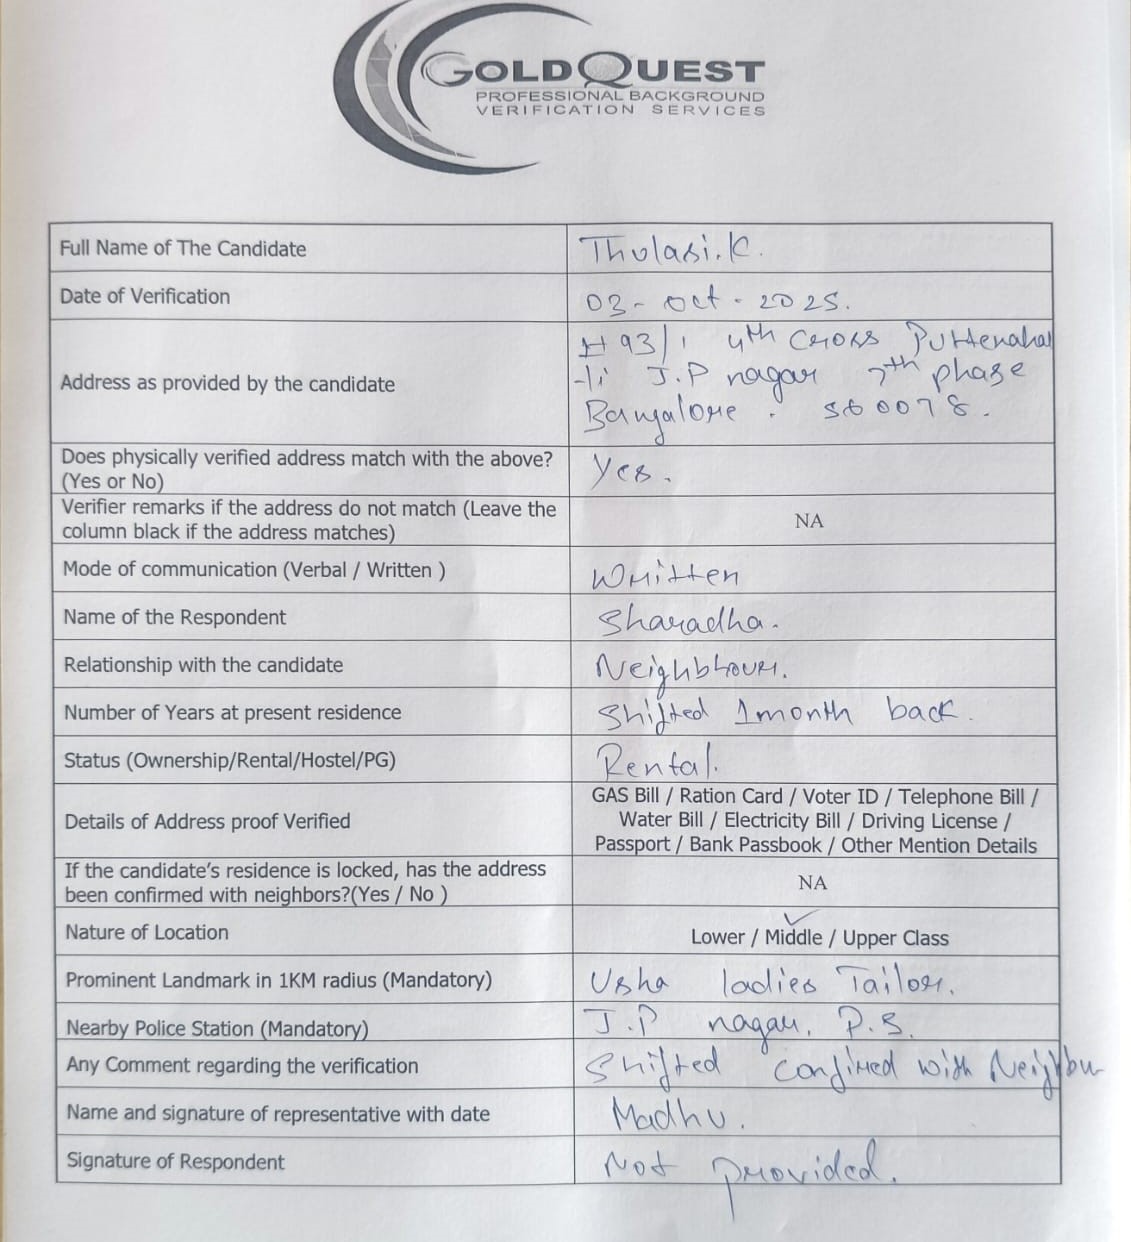 GOLDQUEST
PROFESSIONAL BACKGROUND
VERIFICATION SERVICES
Full Name of The Candidate
Thulasi.K.
Date of Verification
03- Oct - 2025.
Address as provided by the candidate
# 93/1 4th Cross Puttenahal
-li J.P nagar 7th phase
Bangalore . 560078.
Does physically verified address match with the above?
(Yes or No)
Yes.
Verifier remarks if the address do not match (Leave the
column black if the address matches)
NA
Mode of communication (Verbal / Written )
Written
Name of the Respondent
Sharadha.
Relationship with the candidate
Neighbhour.
Number of Years at present residence
Shifted 1month back.
Status (Ownership/Rental/Hostel/PG)
Rental.
Details of Address proof Verified
GAS Bill / Ration Card / Voter ID / Telephone Bill /
Water Bill / Electricity Bill / Driving License /
Passport / Bank Passbook / Other Mention Details
If the candidate's residence is locked, has the address
been confirmed with neighbors?(Yes / No )
NA
Nature of Location
Lower / Middle / Upper Class
Prominent Landmark in 1KM radius (Mandatory)
Usha ladies Tailor.
Nearby Police Station (Mandatory)
J.P nagar. P.S.
Any Comment regarding the verification
Shifted confired with Neighbur
Name and signature of representative with date
Madhu.
Signature of Respondent
Not provided.